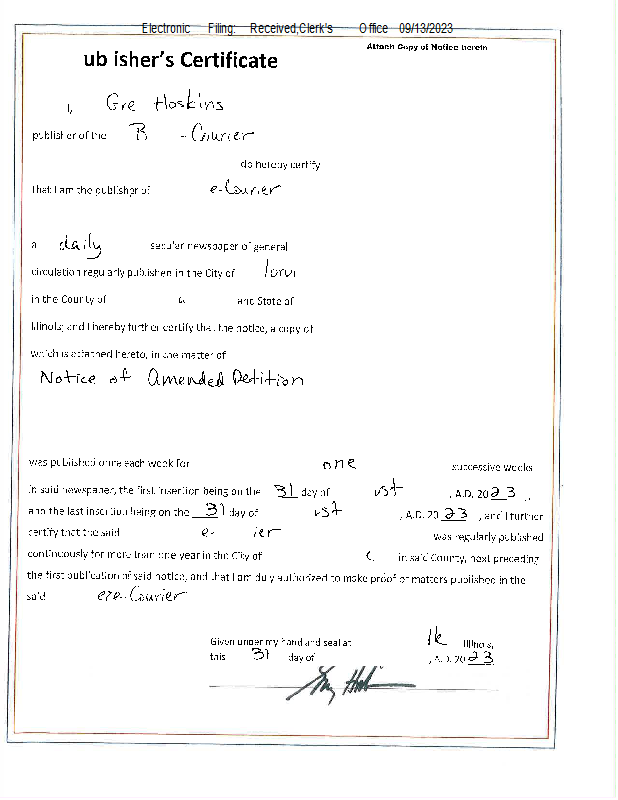 Electronic Filing: Received,Clerk's Office 09/13/2023
Attach Copy of Notice herein
ub isher's Certificate
I, Gre Hoskins
publisher of the B - Courier
do hereby certify
that I am the publisher of e-Courier
a daily secular newspaper of general
circulation regularly published in the City of
in the County of and State of
Illinois; and I hereby further certify that the notice, a copy of
which is attached hereto, in the matter of
Notice of Amended Petition
was published once each week for one successive weeks
in said newspaper, the first insertion being on the 31 day of ust , A.D. 2023 ,
and the last insertion being on the 31 day of ust , A.D. 2023 , and I further
certify that the said e- ier was regularly published
continuously for more than one year in the City of in said County, next preceding
the first publication of said notice, and that I am duly authorized to make proof of matters published in the
said -Courier
Given under my hand and seal at Illinois,
this 31 day of , A.D. 2023